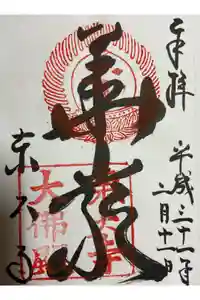 奉拝
平成三十一年
月十一日
華厳
東大寺
東大寺
大佛殿